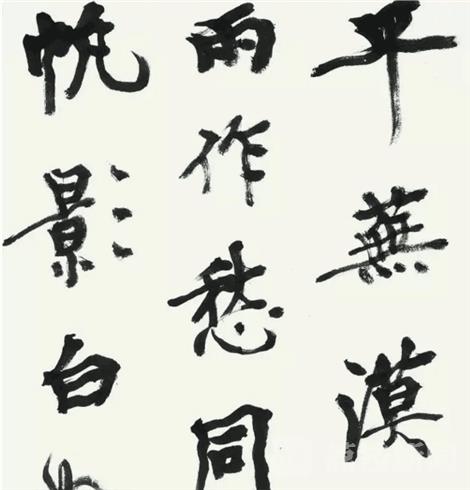 平蕪漠
雨作愁同
帆影白